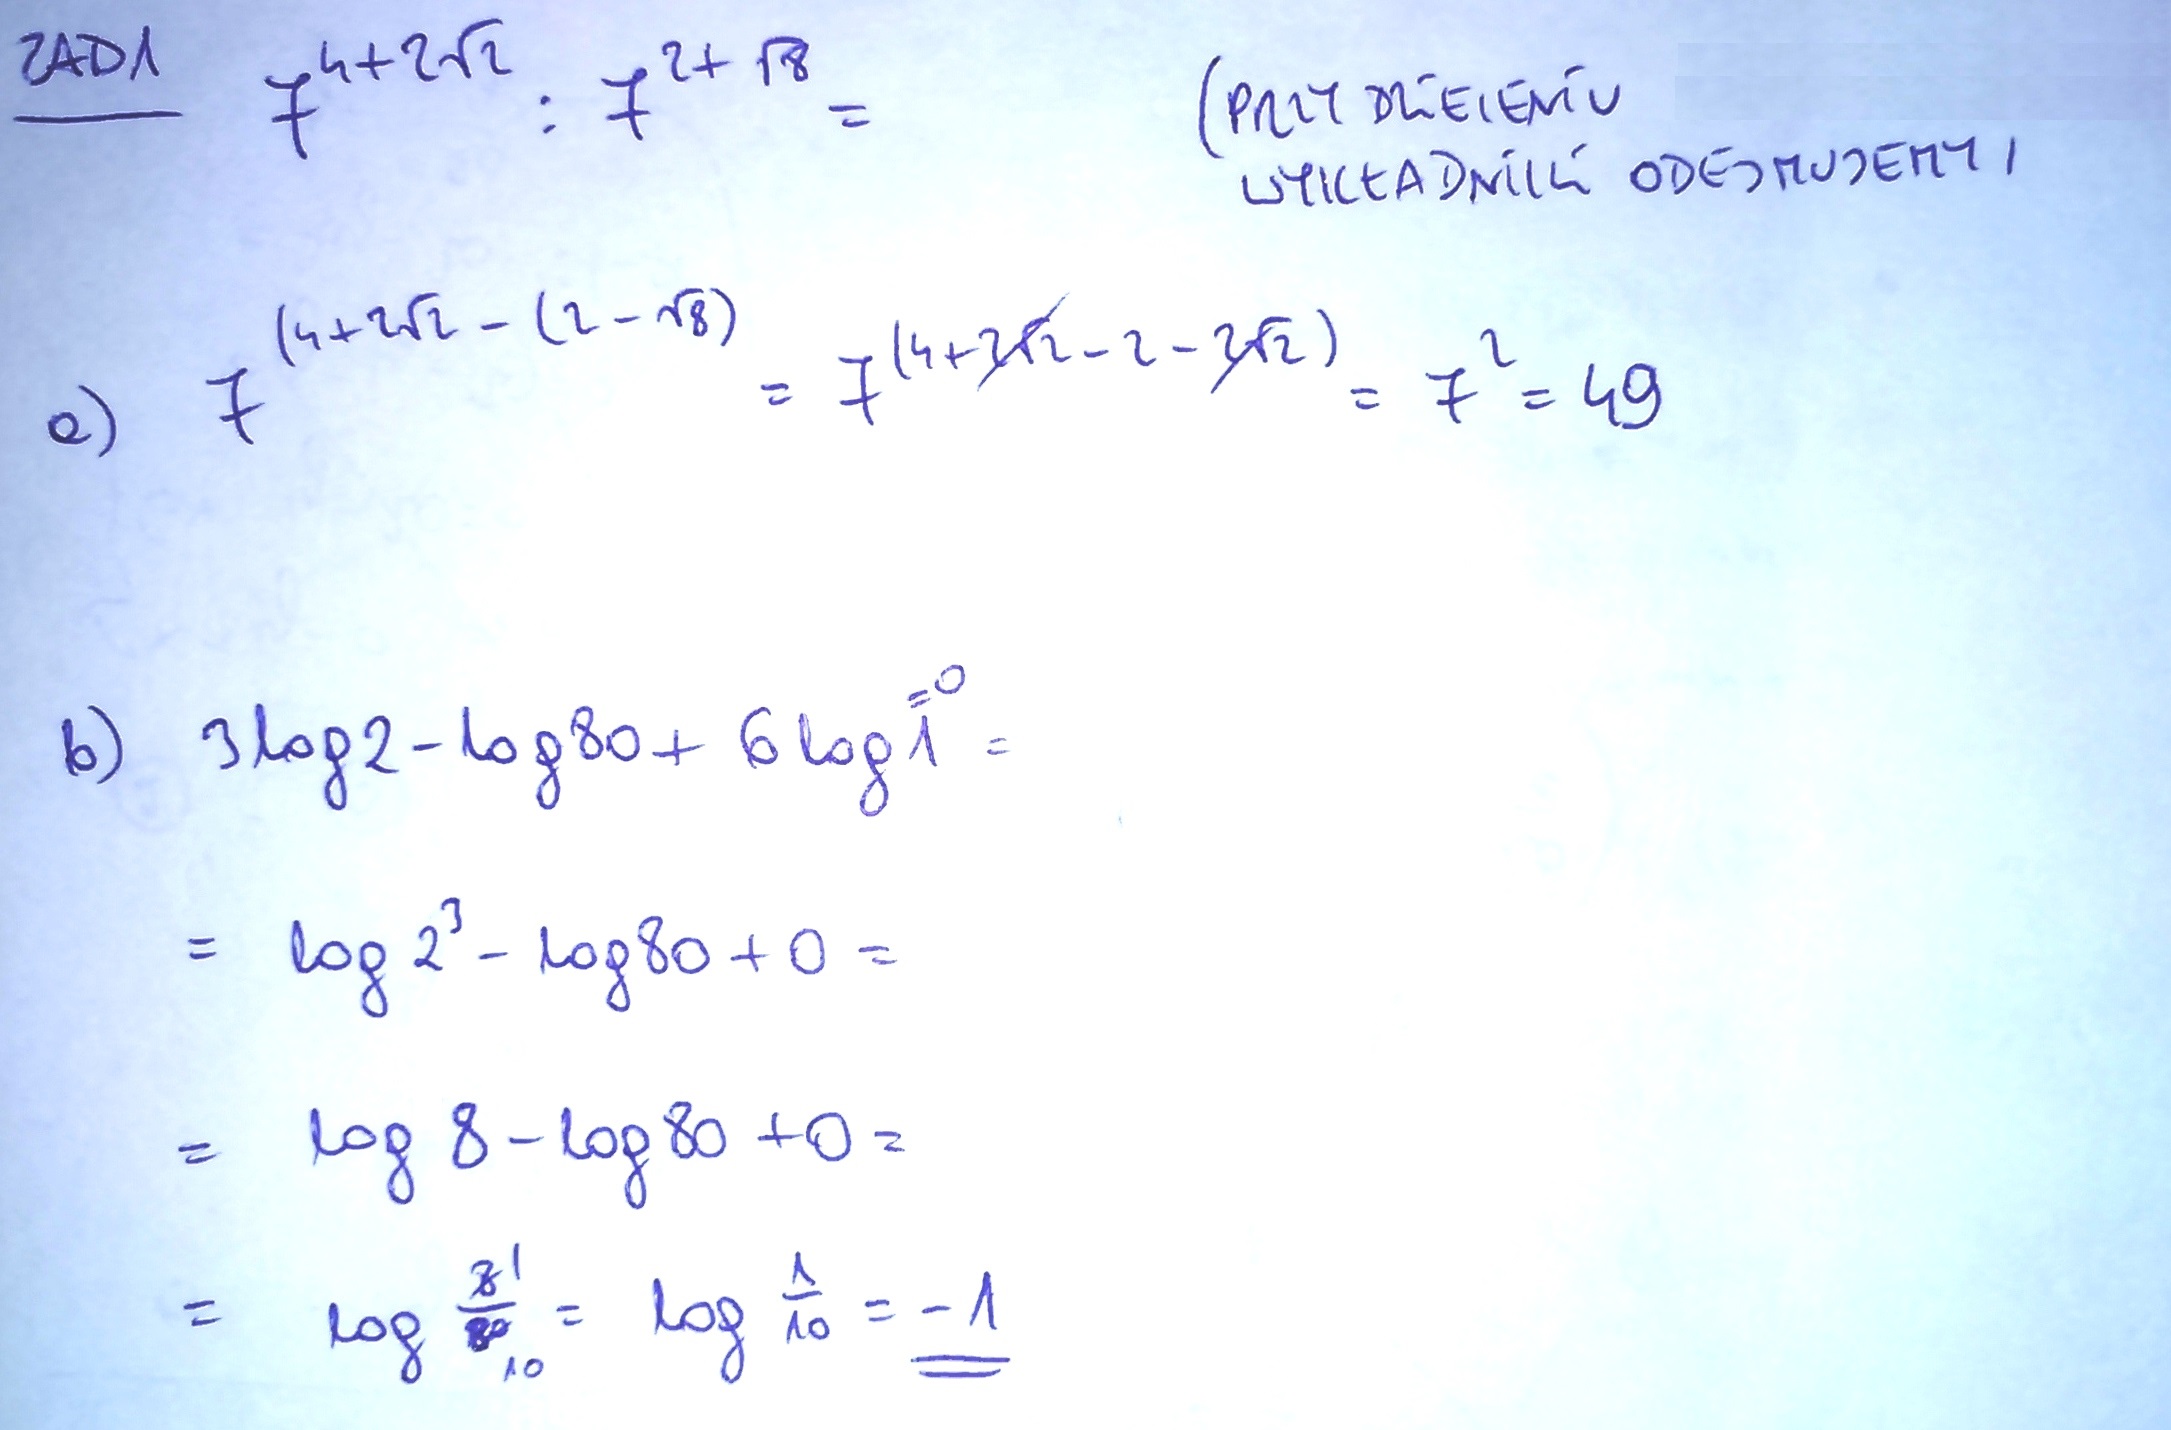 ZAD1 7^{4+2√2} : 7^{2+√8} =
(PRZY DZIELENIU
WYKŁADNIKI ODEJMUJEMY)
a) 7^{(4+2√2-(2-√8)} = 7^{(4+2√2-2-2√2)} = 7^2 = 49
b) 3log2-log80+6log1^{=0} =
= log2^3-log80+0=
= log8-log80+0=
= log 8^1/80_10 = log 1/10 = -1